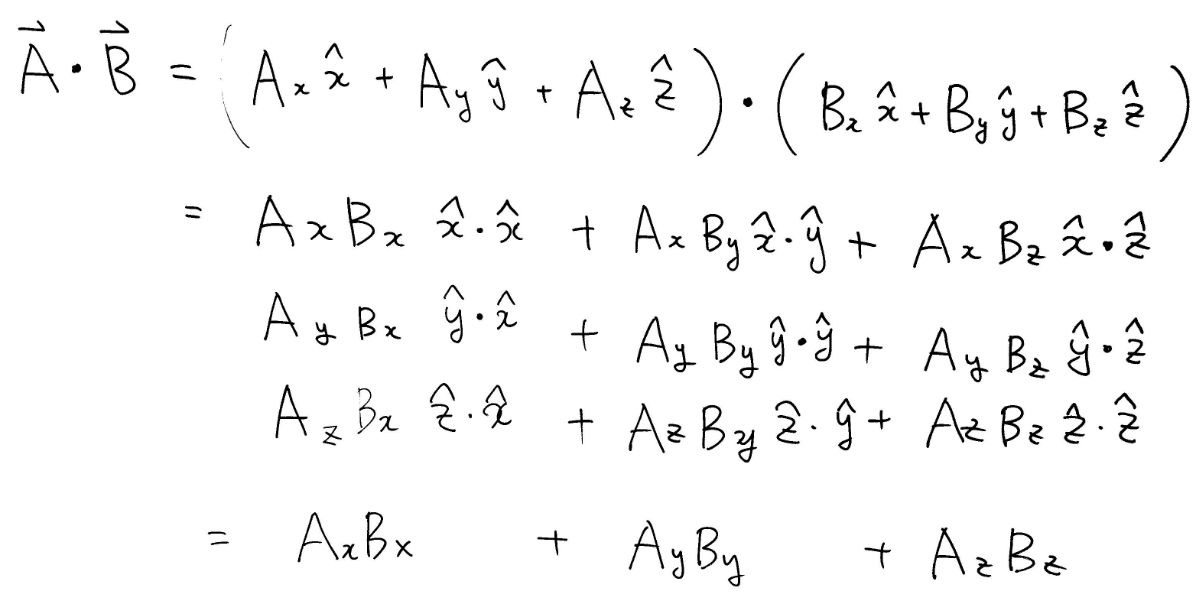 $\vec{A} \cdot \vec{B} = (A_x \hat{x} + A_y \hat{y} + A_z \hat{z}) \cdot (B_x \hat{x} + B_y \hat{y} + B_z \hat{z})$
$= A_x B_x \, \hat{x} \cdot \hat{x} + A_x B_y \, \hat{x} \cdot \hat{y} + A_x B_z \, \hat{x} \cdot \hat{z}$
$A_y B_x \, \hat{y} \cdot \hat{x} + A_y B_y \, \hat{y} \cdot \hat{y} + A_y B_z \, \hat{y} \cdot \hat{z}$
$A_z B_x \, \hat{z} \cdot \hat{x} + A_z B_y \, \hat{z} \cdot \hat{y} + A_z B_z \, \hat{z} \cdot \hat{z}$
$= A_x B_x + A_y B_y + A_z B_z$